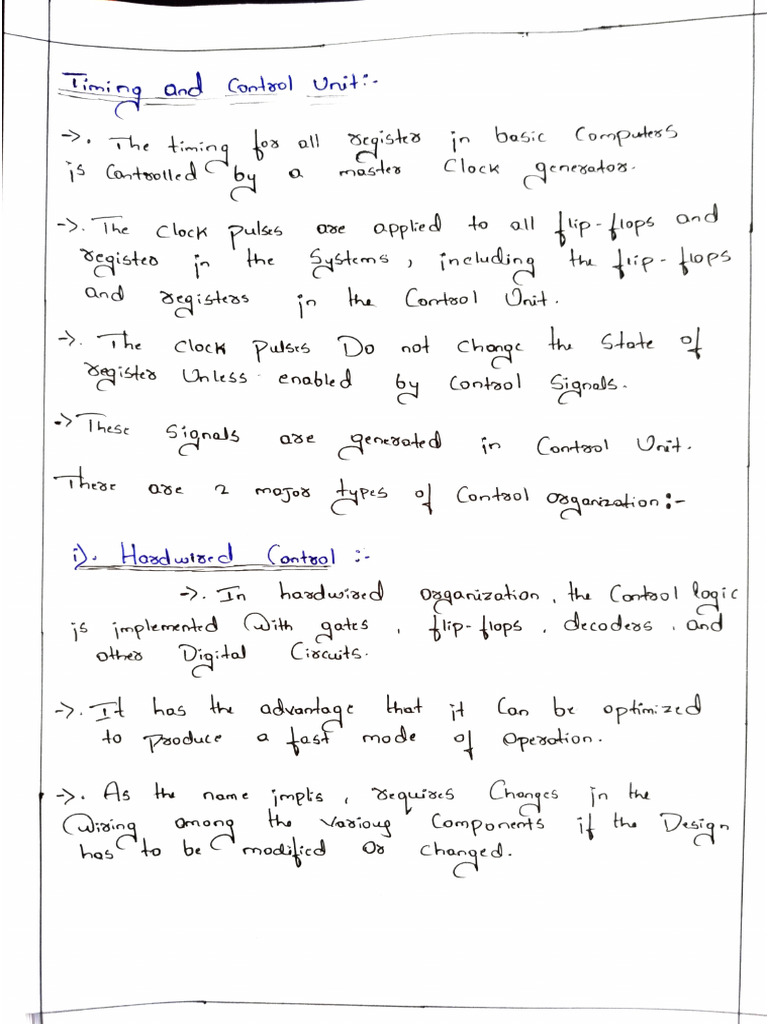 Timing and Control Unit:-
->. The timing for all register in basic Computers
is Controlled by a master Clock generator.
->. The Clock Pulses are applied to all flip-flops and
register in the Systems, including the flip-flops
and registers in the Control Unit.
->. The Clock Pulses Do not Change the State of
register Unless enabled by Control Signals.
-> These Signals are generated in Control Unit.
There are 2 major types of Control organization:-
i). Hardwired Control :-
->. In hardwired organization, the Control logic
is implemented With gates, flip-flops, decoders, and
other Digital Circuits.
->. It has the advantage that it Can be optimized
to Produce a fast mode of Operation.
->. As the name impts, requires Changes in the
Wiring among the Various Components if the Design
has to be modified Or Changed.